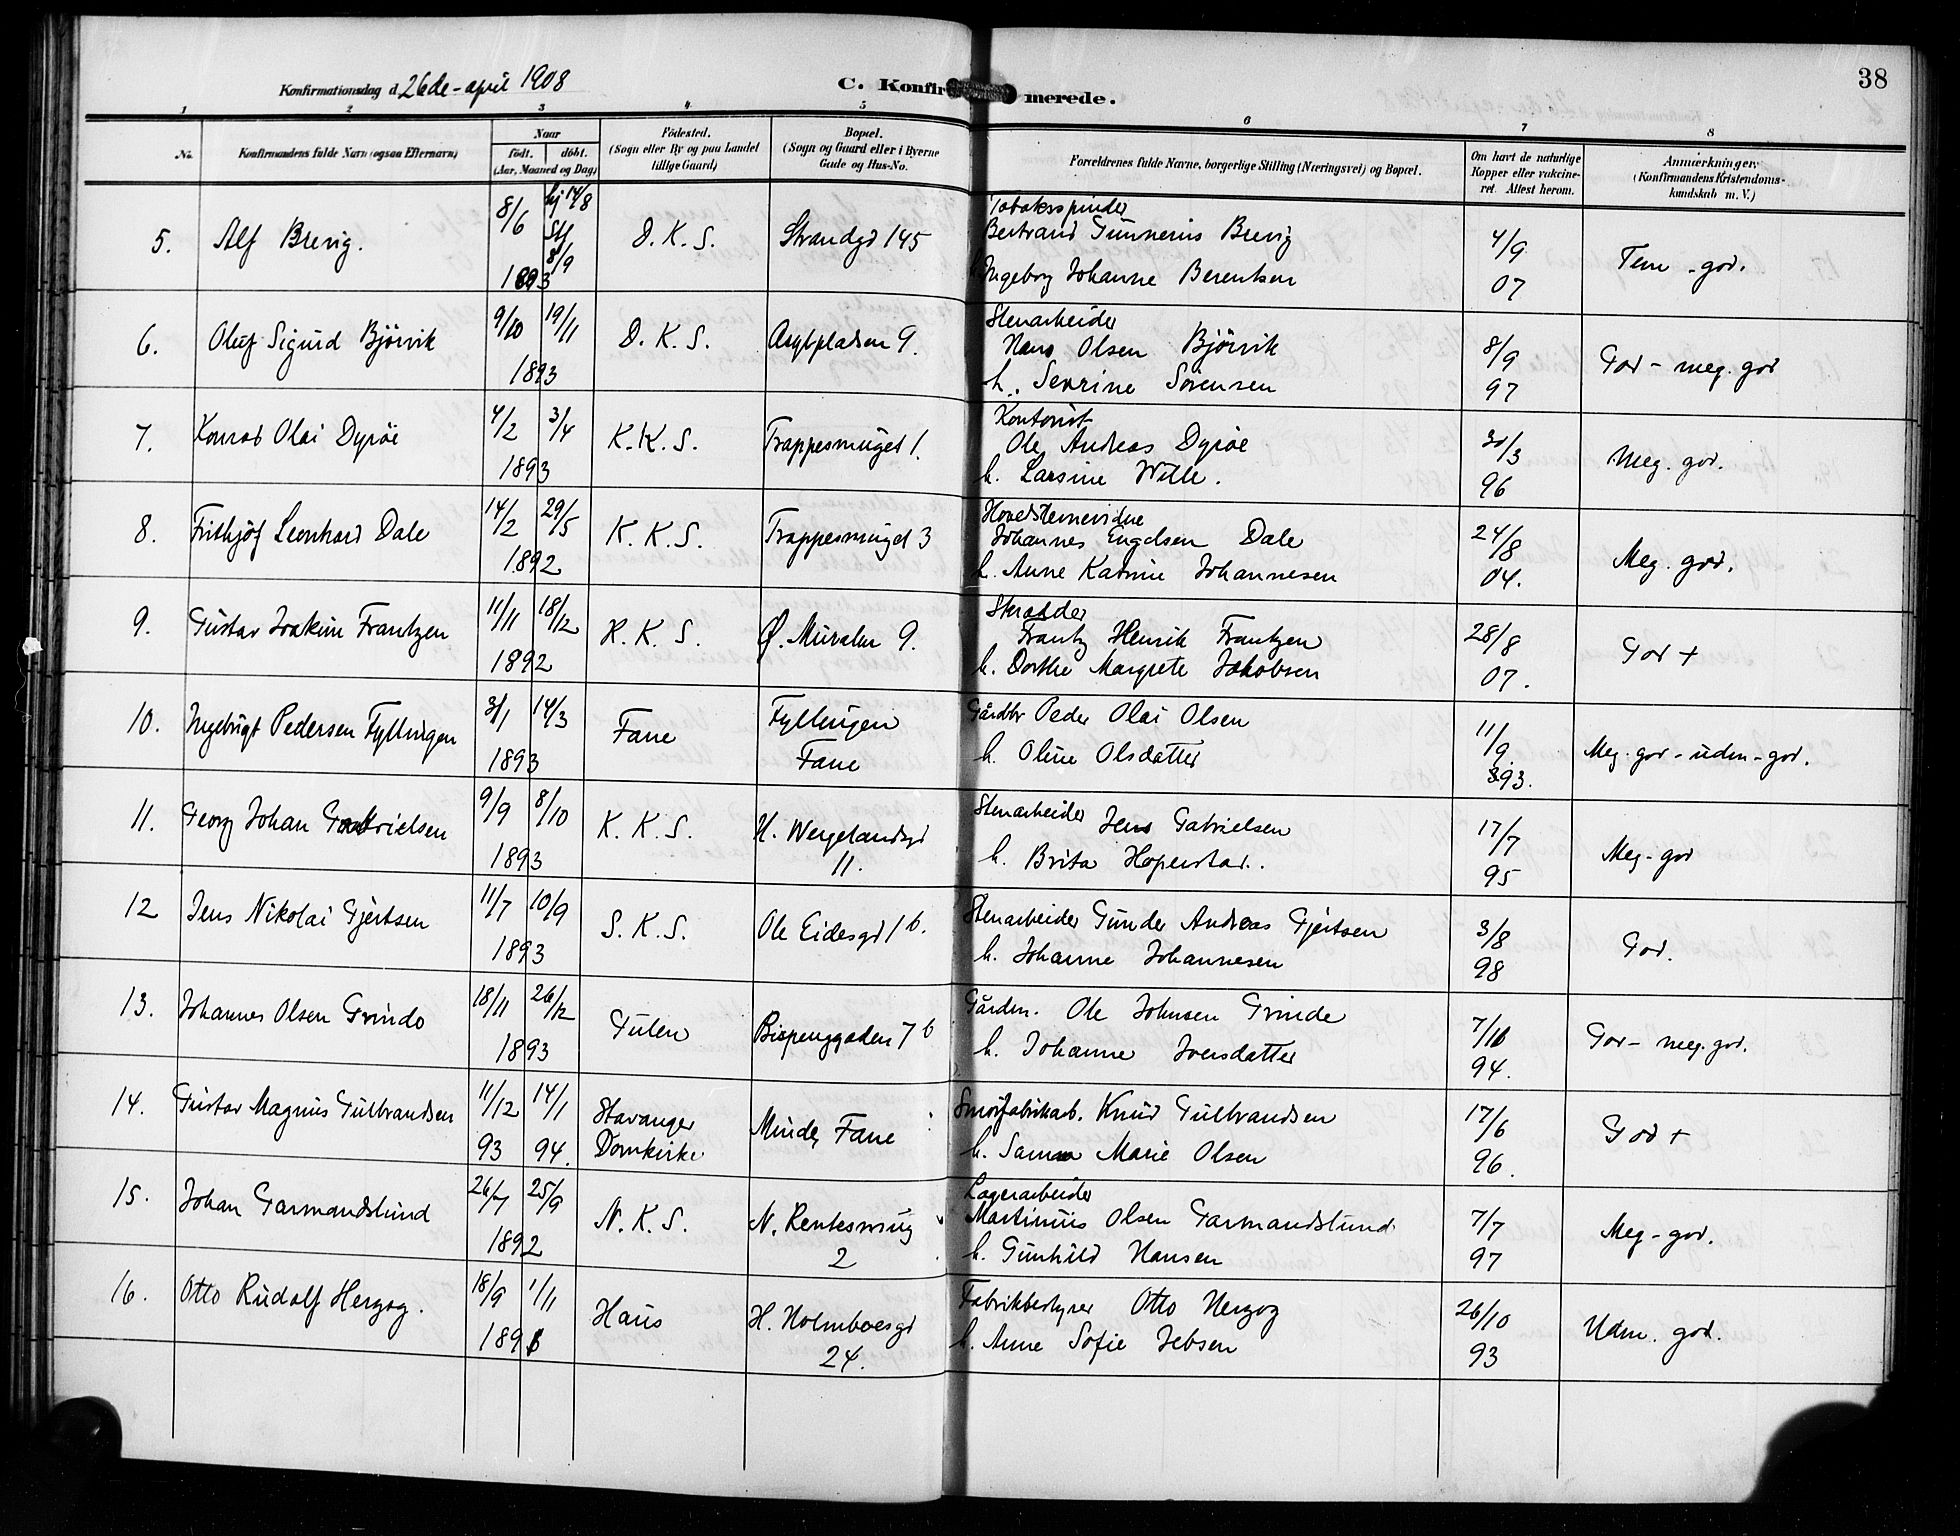 38
Konfirmationsdag d. 26de - april 1908
C. Konfirmerede.
1 2 3 4 5 6 7 8
No. Konfirmandens fulde Navn (ogsaa Efternavn)
Naar
födt. döbt.
(Aar, Maaned og Dag)
Födested.
(Sogn eller By og paa Landet
tillige Gaard)
Bopæl.
(Sogn og Gaard eller i Byerne
Gade og Hus-No.
Forældrenes fulde Navne, borgerlige Stilling (Næringsvei) og Bopæl.
Om havt de naturlige
Kopper eller vakcine-
ret. Attest herom.
Anmærkninger.
(Konfirmandens Kristendoms-
kundskab m. V.)
5. Alf Brevig. 8/6 hj 14/8 Stf 8/9 1893 D. K. S. Strandgd 145
Tobaksspinder
Bertrand Gunnerius Brevig
Ingeborg Johanne Berentsen
4/9 07 Tem. god.
6. Oluf Sigurd Bjørvik 9/10 19/11 1893 D. K. S. Asylpladsen 9.
Stenarbeider
Hans Olsen Bjørvik
h. Sevrine Sørensen
8/9 97 God - meg. god
7. Konrad Olai Dyrøe 4/2 3/4 1893 K. K. S. Trappesmuget 1.
Kontorist
Ole Andreas Dyrøe
h. Larsine Wille.
30/3 96 Meg. god.
8. Frithjof Leonhard Dale 14/2 29/5 1892 K. K. S. Trappesmuget 3
Johannes Engelsen Dale
h. Anne Katrine Johannesen
24/8 04. Meg. god.
9. Gustav Joakim Frantzen 11/11 18/12 1892 K. K. S. Ø. Muralm 9.
Skrædder
Frantz Henrik Frantzen
h. Dorthe Margrete Jakobsen
28/8 07. God +
10. Ingebrigt Pedersen Fyllingen 3/1 14/3 1893 Fane Fyllingen
Fane
Gårdbr Peder Olai Olsen
h. Oline Olsdatter
11/9 93. Meg. god - udm - god.
11. Georg Johan Gabrielsen 9/9 8/10 1893 K. K. S. H. Wergelandsgd
11.
Stenarbeider Jens Gabrielsen
h. Brita Hopenstad.
17/7 95 Meg - god
12 Jens Nikolai Gjertsen 11/7 10/9 1893 S. K. S. Ole Eidesgd 1 b.
Stenarbeider Gunder Andreas Gjertsen
h. Johanne Johannesen
3/8 98 God.
13. Johannes Olsen Grinde 18/11 26/12 1893 Gulen Bispenggaden 7 b
Gårdm. Ole Johnsen Grinde
h. Johanne Iversdatter
7/10 94. God - meg. god.
14. Gustav Magnus Gulbrandsen 11/12 93 14/1 94. Stavanger
Domkirke
Minde, Fane
Smørfabrikarb. Knud Gulbrandsen
h. Sanna Marie Olsen
17/6 96. God +
15. Johan Garmandslund 26/7 25/9 1892 N. K. S. N. Rentesmug
2
Lagerarbeider
Martinius Olsen Garmandslund
h. Gunhild Hansen
7/7 97 Meg - god.
16. Otto Rudolf Herzog. 18/9 1/11 Haus H. Holmboesgd
24.
Fabrikbestyrer Otto Herzog
h. Anne Sofie Jebsen
26/10 93 Udm. god.